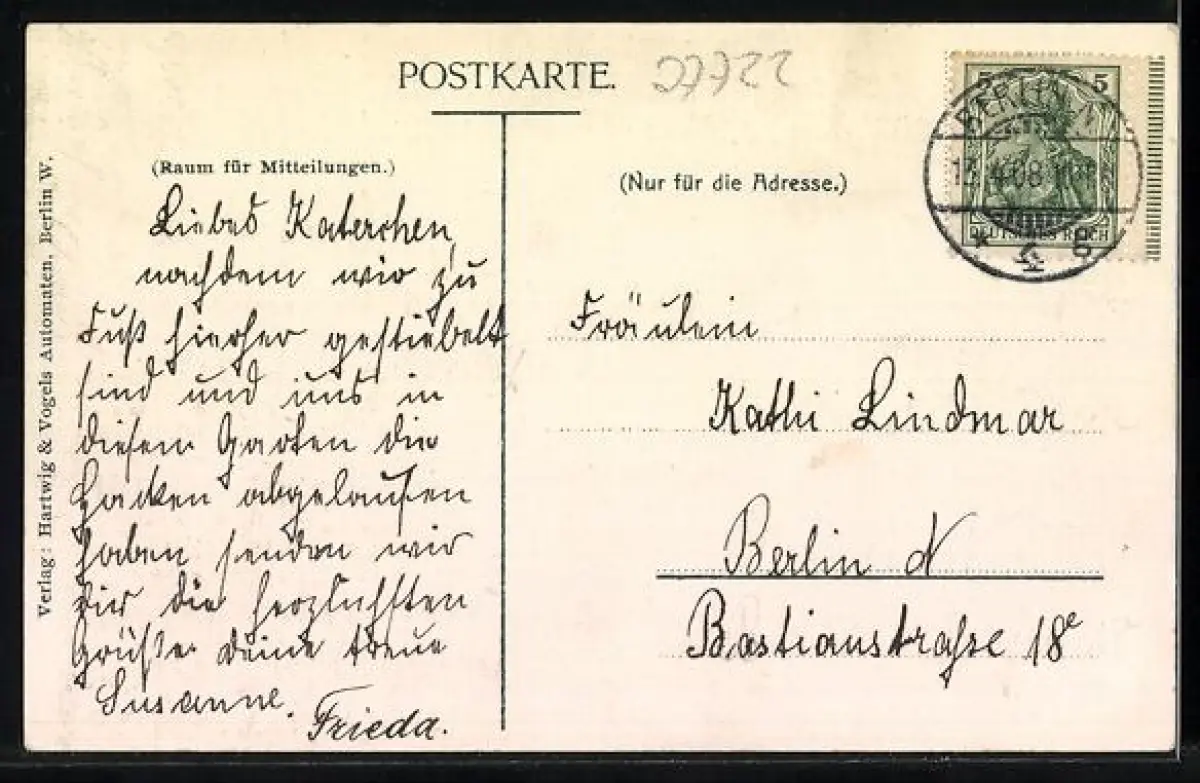 POSTKARTE.
27722
(Raum für Mitteilungen.)
Liebes Katerchen,
nachdem wir zu
Fuß hierher gestiebelt
sind und uns in
diesem Garten die
Hacken abgelaufen
haben senden wir
dir die herzlichsten
Grüße. Deine treue
Susanne.
Frieda.
Verlag: Hartwig & Vogels Automaten, Berlin W.
(Nur für die Adresse.)
5 5
DEUTSCHES REICH
BERLIN N
13.4.08
* 4 g
Fräulein
Kathi Lindmar
Berlin N
Bastianstraße 18e